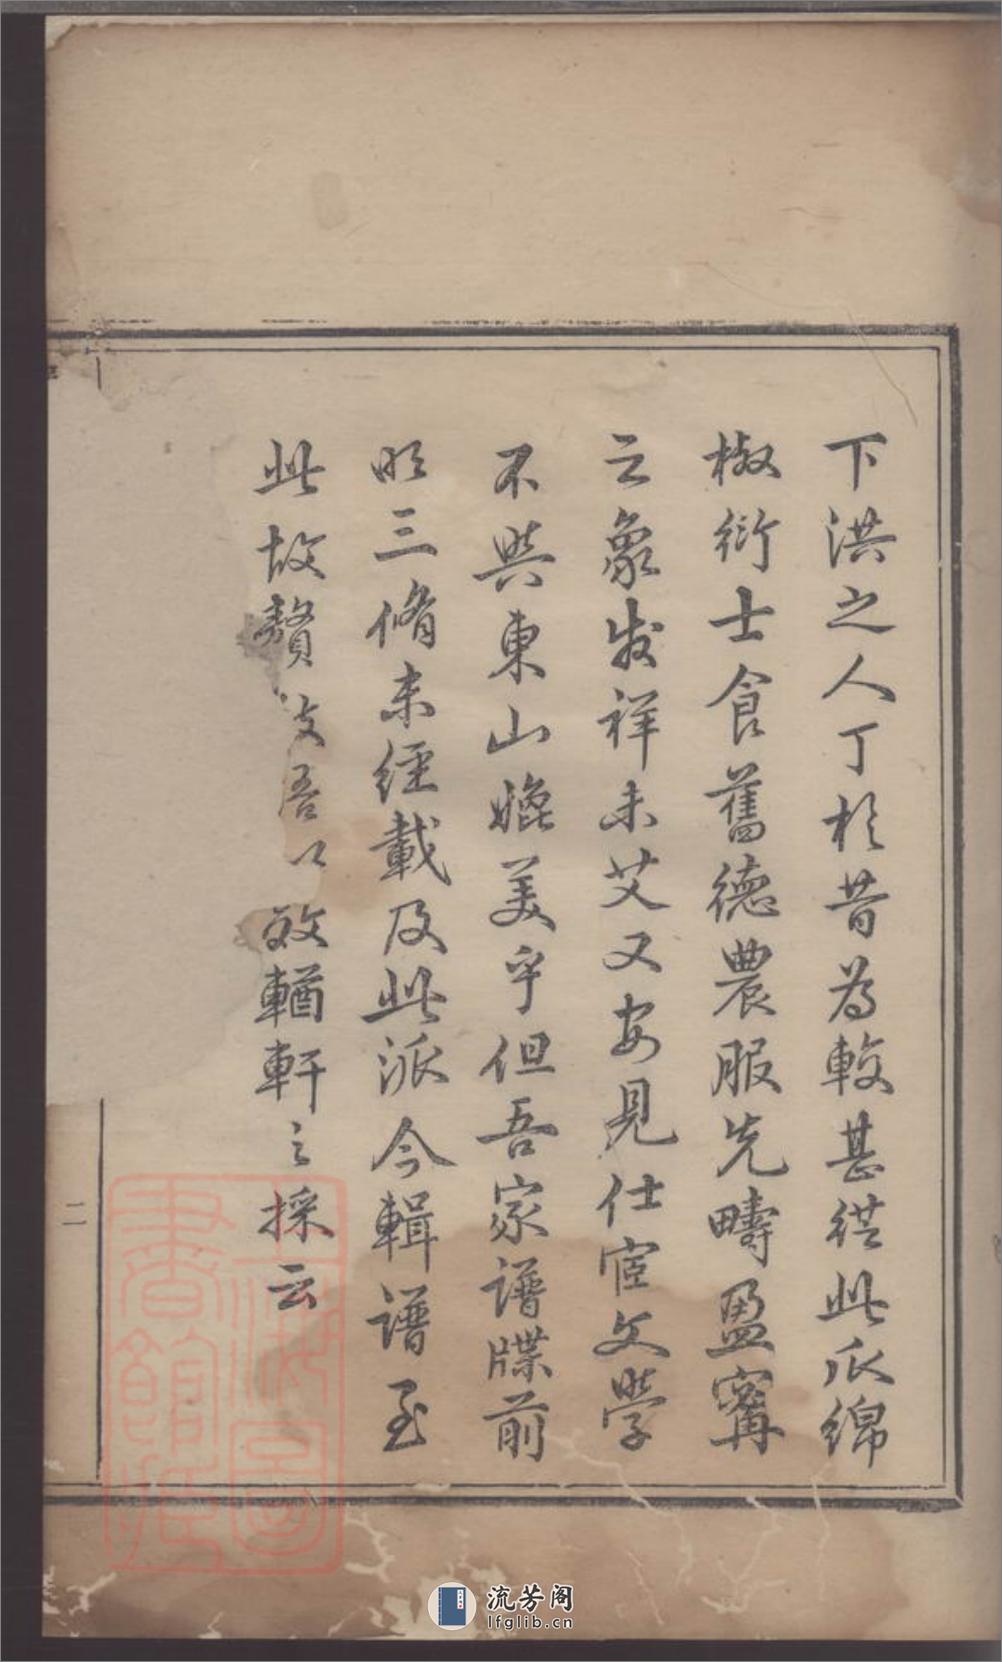 下洪之人丁於昔為較甚從此瓜綿
椒衍士食舊德農服先疇盈寧
之象发祥未艾又安見仕宦文學
不與東山媲美乎但吾家譜牒前
明三脩未經載及此派今輯譜至
此故贅 吾以 輶軒之採云
二
上海圖書館藏
流芳阁
lfglib.cn